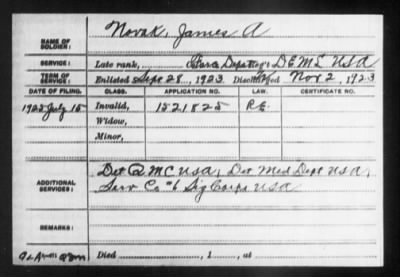 NAME OF SOLDIER: Novak, James A
SERVICE: Late rank, Depot DEML USA
TERM OF SERVICE: Enlisted Sept 28, 1923 Discharged Nov 2, 1923
DATE OF FILING. CLASS. APPLICATION NO. LAW. CERTIFICATE NO.
1925 July 15 Invalid, 1521825 R.E.
Widow,
Minor,
ADDITIONAL SERVICES: Det Q.M.C. USA, Det Med Dept USA,
Serv Co #6 Sig Corps USA
REMARKS:
Died , 1 , at